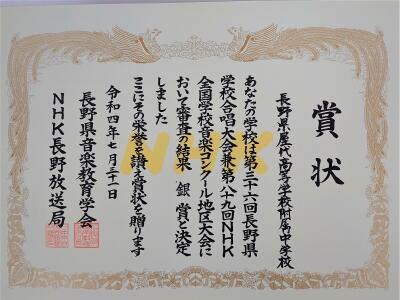 賞状
長野県屋代高等学校附属中学校
あなたの学校は第三十六回長野県
学校合唱大会兼第八十九回NHK
全国学校音楽コンクール地区大会に
おいて審査の結果 銀賞と決定
しました
ここにその栄誉を讃え賞状を贈ります
令和四年七月三十一日
長野県音楽教育学会
NHK長野放送局
NHK